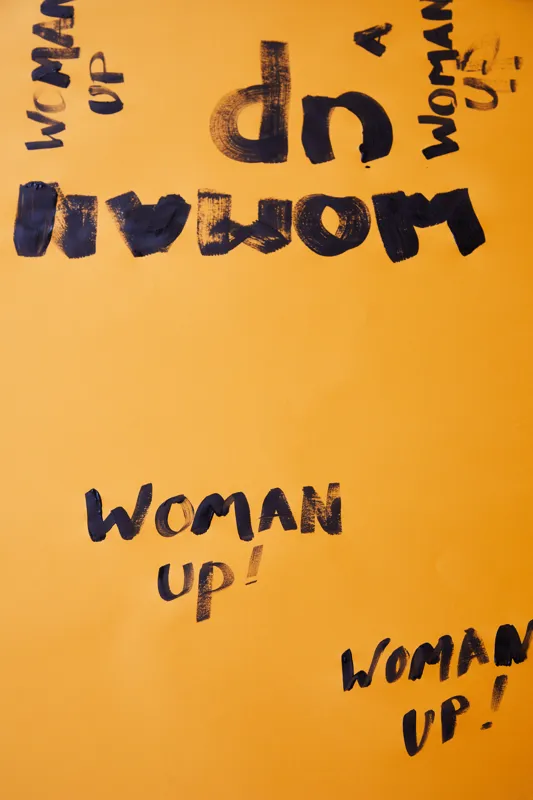 WOMAN
UP
A
WOMAN
UP!
WOMAN
Up
WOMAN
UP!
WOMAN
UP!